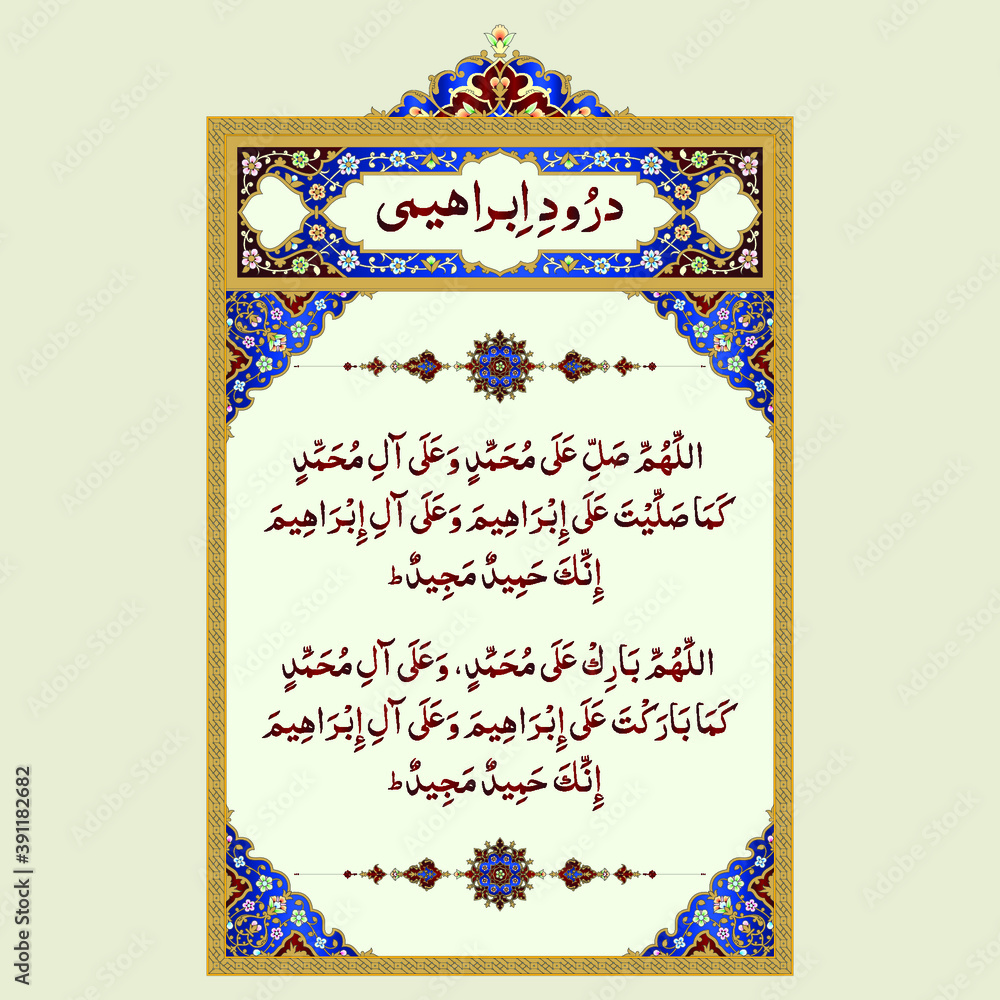 درُودِ اِبراهیمی
اللَّهُمَّ صَلِّ عَلَى مُحَمَّدٍ وَعَلَى آلِ مُحَمَّدٍ
كَمَا صَلَّيْتَ عَلَى إِبْرَاهِيمَ وَعَلَى آلِ إِبْرَاهِيمَ
إِنَّكَ حَمِيدٌ مَجِيدٌ ؕ
اللَّهُمَّ بَارِكْ عَلَى مُحَمَّدٍ، وَعَلَى آلِ مُحَمَّدٍ
كَمَا بَارَكْتَ عَلَى إِبْرَاهِيمَ وَعَلَى آلِ إِبْرَاهِيمَ
إِنَّكَ حَمِيدٌ مَجِيدٌ ؕ
Adobe Stock | #391182682